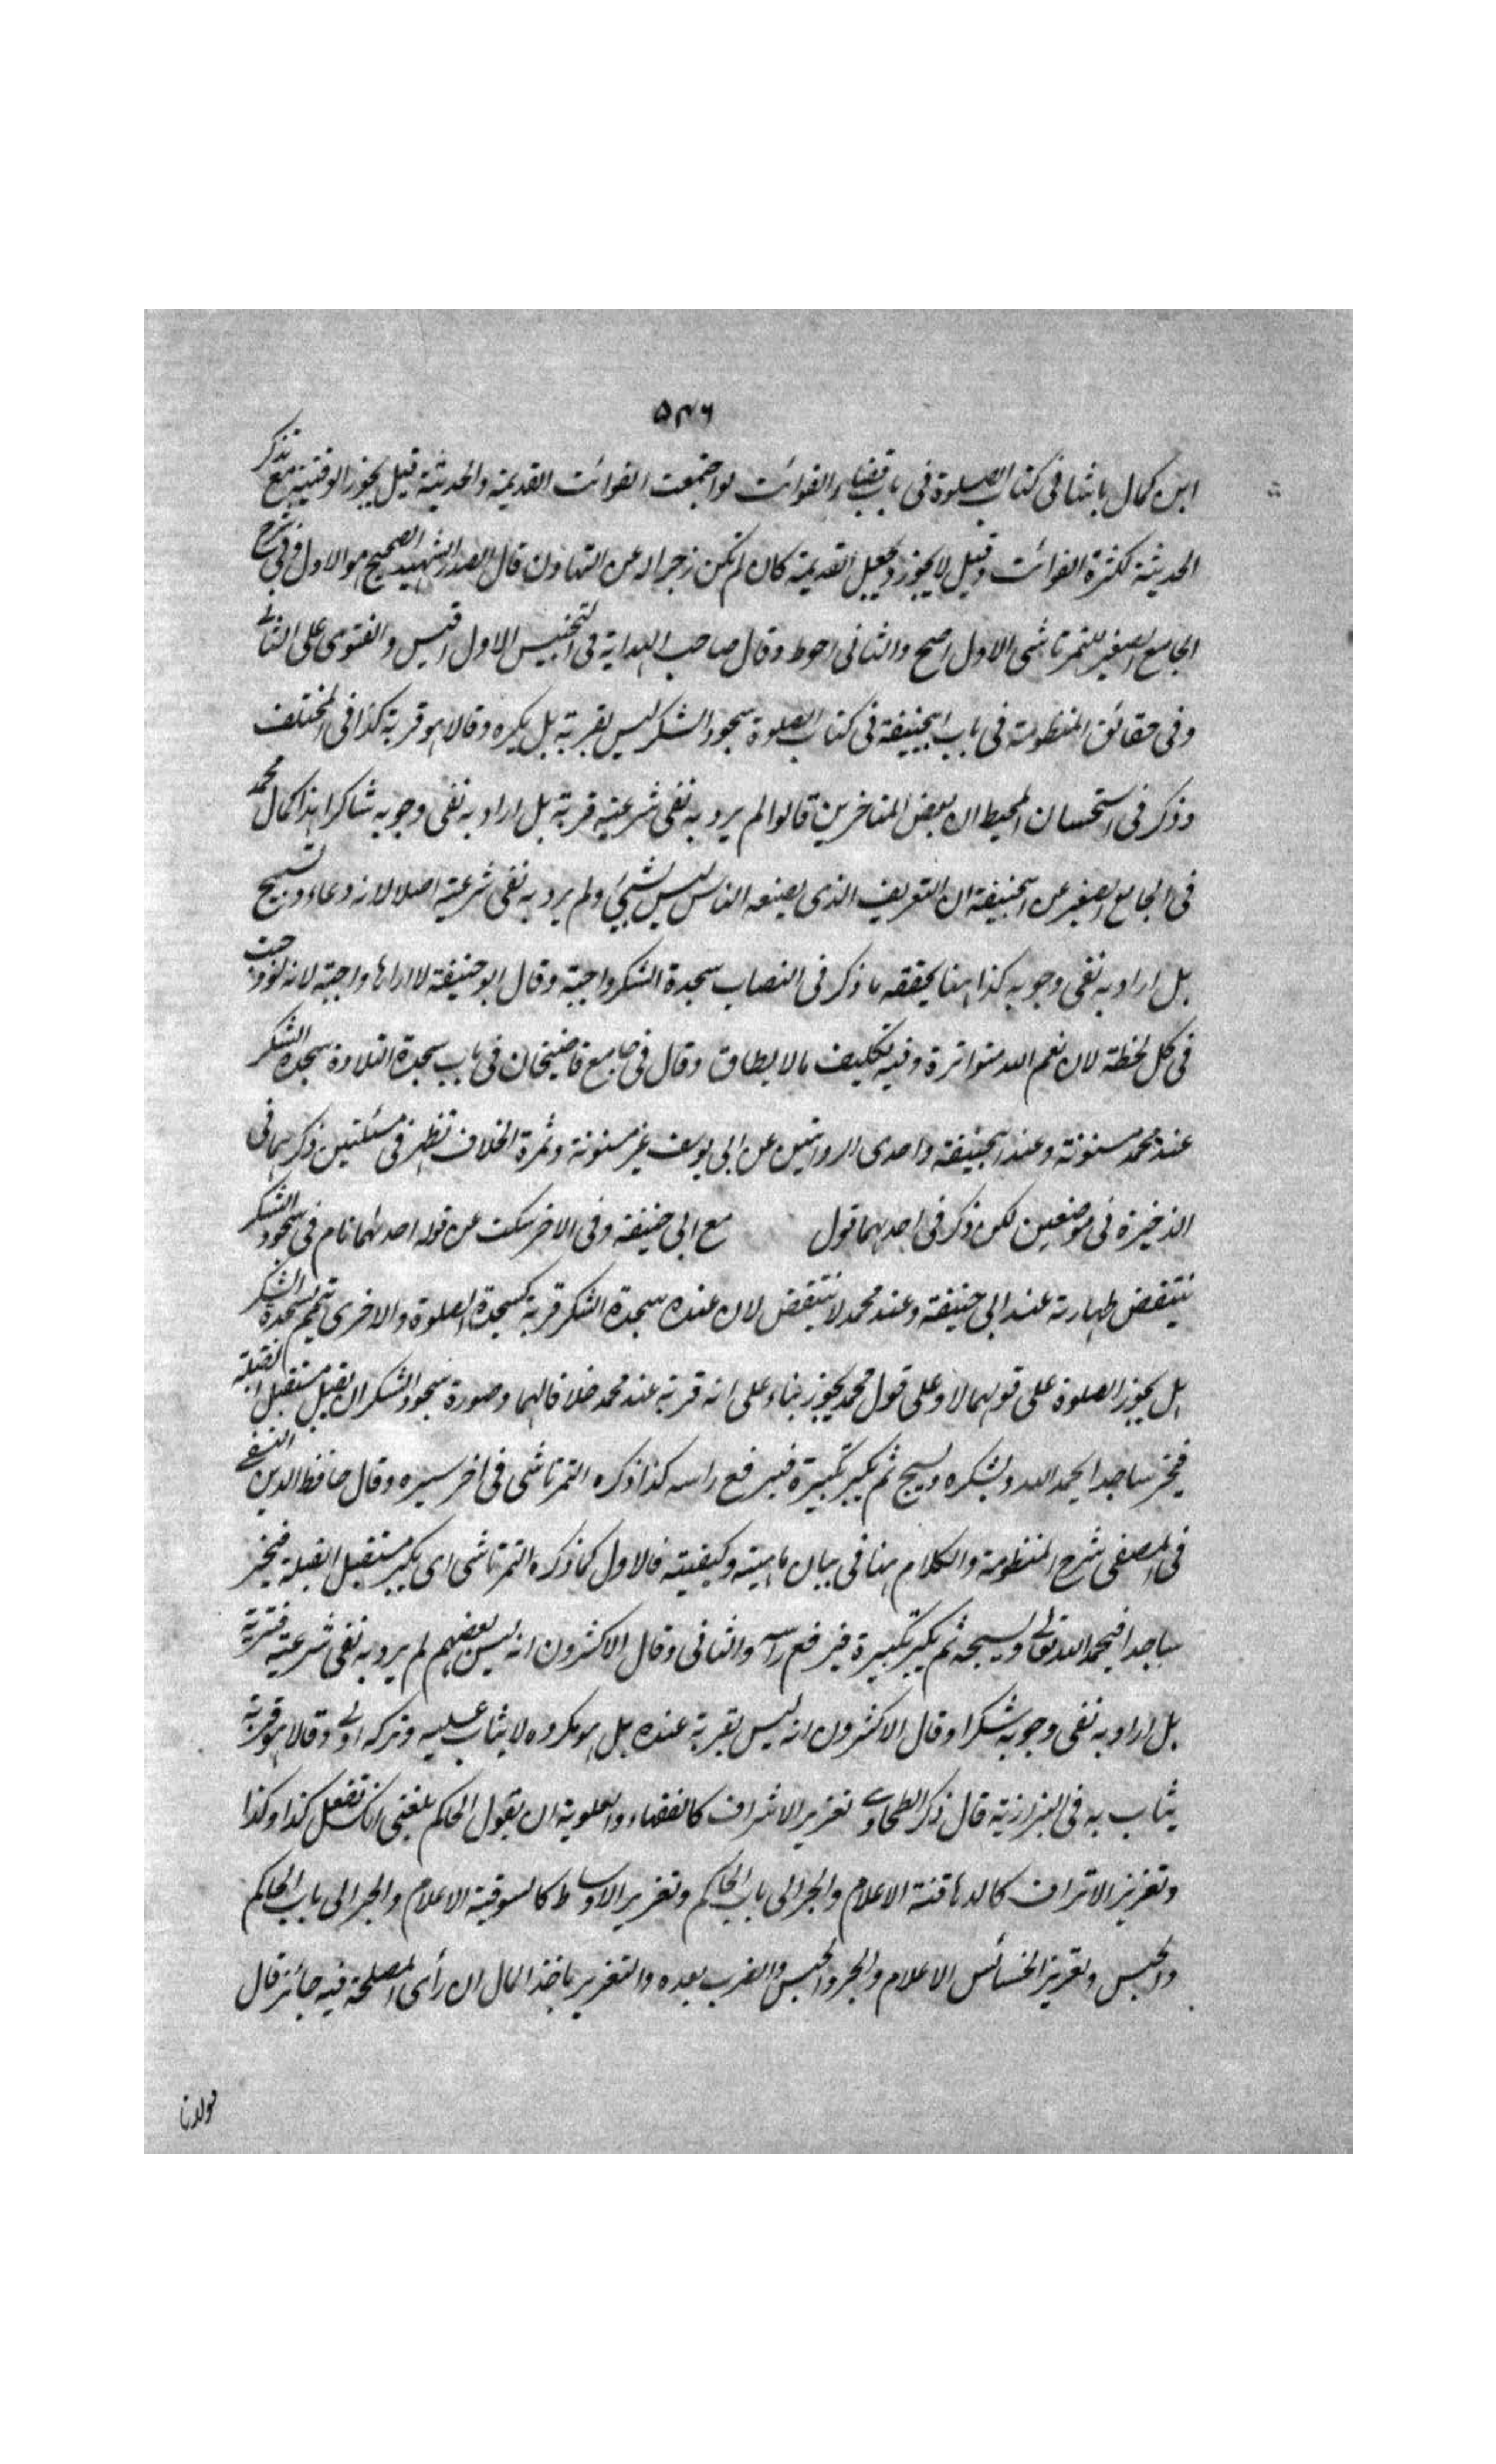 ٥٣٦
ابن كمال باشا فى كتاب الصلوة فى باب قضاء الفوائت لو اجتمعت الفوائت القديمة والحديثة قيل يجوز الوقتية مع تذكر
الحديثة لكثرة الفوائت وقيل لا يجوز ويجعل القديمة كان لم تكن زجرا له عن التهاون قال الصدر الشهيد الصحيح هو الاول وفى شرح
الجامع الصغير للتمرتاشى الاول اصح والثانى احوط وقال صاحب الهداية فى التجنيس الاول اقيس والفتوى على الثانى
وفى حقائق المنظومة فى باب ابيحنيفة فى كتاب الصلوة سجود الشكر ليس بقربة بل يكره وقالا هو قربة كذا فى المختلف
وذكر فى استحسان المحيط ان بعض المتاخرين قالوا لم يرد به نفى شرعيته قربة بل اراد به نفى وجوبه شاكرا هذا كما قال محمد
فى الجامع الصغير عن ابيحنيفة ان التعريف الذى يصنعه الناس ليس بشيئ ولم يرد به نفى شرعية اصلا لانه دعاء وتسبيح
بل اراد به نفى وجوبه كذا هنا يحققه ما ذكر فى النصاب سجدة الشكر واجبة وقال ابو حنيفة لا اراها واجبة لانه لو وجبت
فى كل لحظة لان نعم الله متواترة وفيه تكليف ما لا يطاق وقال فى جامع قاضيخان فى باب سجدة التلاوة سجدة الشكر
عند محمد مسنونة وعند ابيحنيفة واحدى الروايتين عن ابى يوسف غير مسنونة وثمرة الخلاف تظهر فى مسئلتين ذكرهما فى
الذخيرة فى موضعين لكن ذكر فى احدهما قول مع ابى حنيفة وفى الاخر سكت عن قوله احدهما نام فى سجود الشكر
ينتقض طهارته عند ابى حنيفة وعند محمد لا ينتقض لان عنده سجدة الشكر قربة كسجدة الصلوة والاخرى تيمم لسجدة الشكر
هل يجوز الصلوة على قولهما لا وعلى قول محمد يجوز بناء على انه قربة عند محمد خلافا لهما وصورة سجود الشكر ان يقبل مستقبل القبلة
فيخر ساجدا يحمد الله ويشكره ويسبح ثم يكبر تكبيرة فيرفع راسه كذا ذكره التمرتاشى فى اخر سيره وقال حافظ الدين النسفى
فى المصفى شرح المنظومة والكلام هنا فى بيان ماهيته وكيفيته فالاول كما ذكره التمرتاشى اى يكبر مستقبل القبلة فيخر
ساجدا فيحمد الله تعالى ويسبحه ثم يكبر تكبيرة فيرفع راسه والثانى وقال الاكثرون انه ليس بعضهم لم يرد به نفى شرعيته قربة
بل اراد به نفى وجوبه شكرا وقال الاكثرون انه ليس بقربة عنده بل هو مكروه لا يثاب عليه وتركه اولى وقالا هو قربة
يثاب به فى البزازية قال ذكر الطحاوى تعزير الاشراف كالفقهاء والعلوية ان يقول الحاكم بلغنى انك تفعل كذا وكذا
وتعزير الاتراف كالدهاقنة الاعلام والجر الى باب الحاكم وتعزير الاوساط كالسوقية الاعلام والجر الى باب الحاكم
والحبس وتعزير الخسائس الاعلام والجر والحبس والضرب بعده والتعزير باخذ المال ان رأى المصلحة فيه جائز قال
مولانا